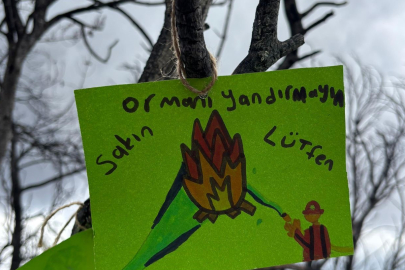 ormanı yandırmayın
Sakın
Lütfen